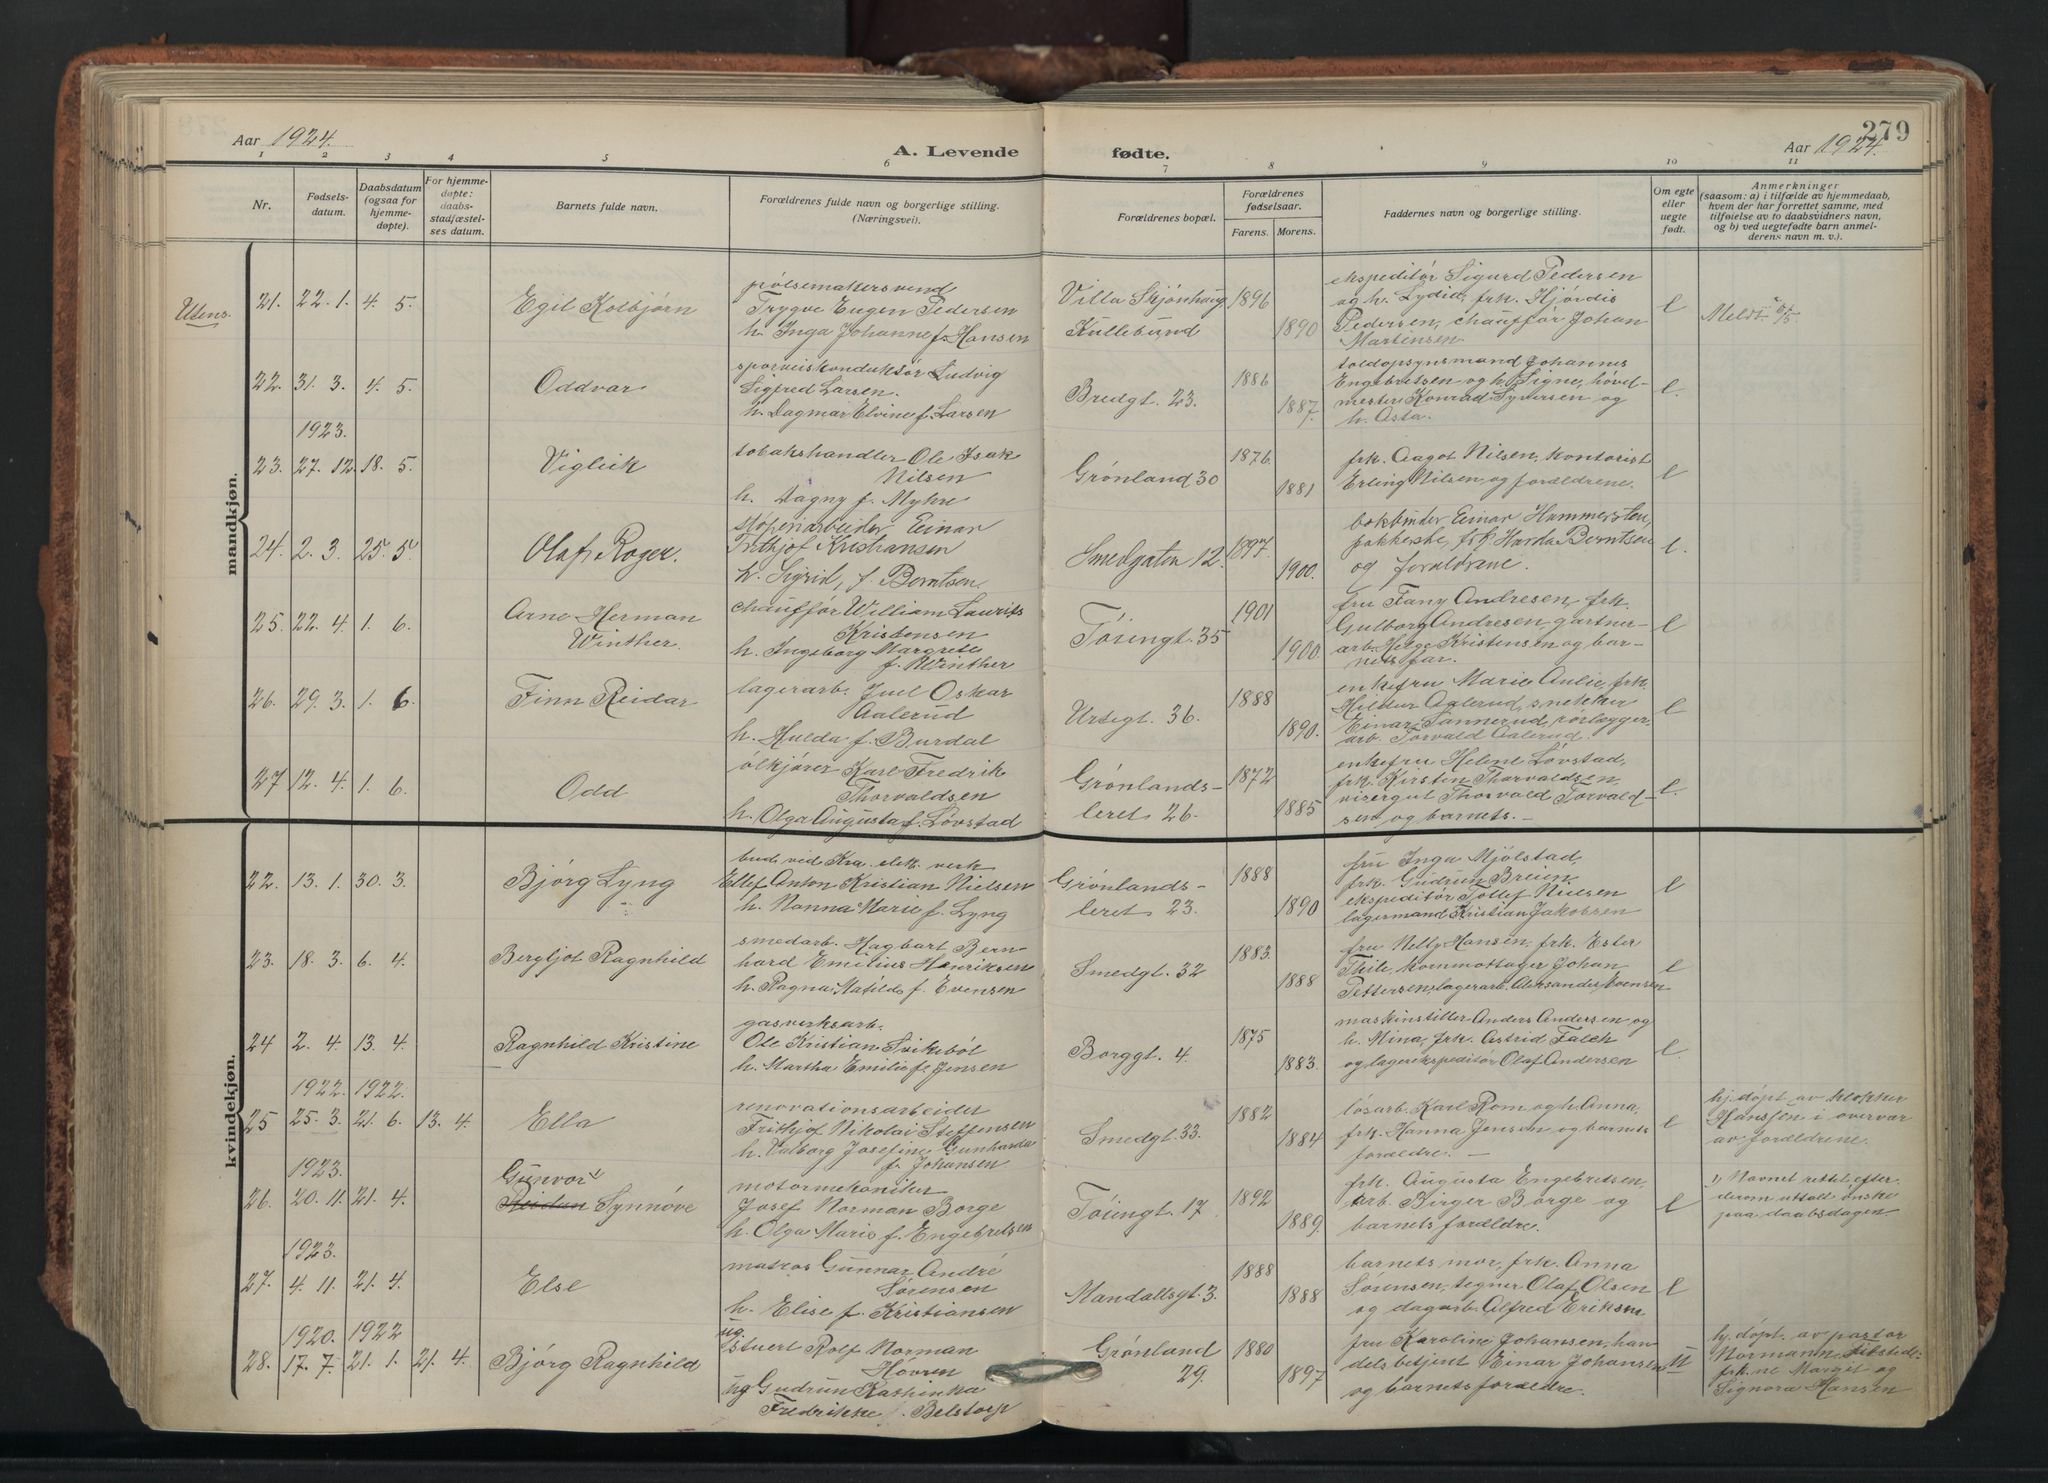 279
Aar 1924.
A. Levende fødte.
Aar 1924.
1 2 3 4 5 6 7 8 9 10 11
Nr.
Fødsels-
datum.
Daabsdatum
(ogsaa for
hjemme-
døpte).
For hjemme-
døpte:
daabs-
stadfæstel-
ses datum.
Barnets fulde navn.
Forældrenes fulde navn og borgerlige stilling.
(Næringsvei).
Forældrenes bopæl.
Forældrenes
fødselsaar.
Farens. Morens.
Faddernes navn og borgerlige stilling.
Om egte
eller
uegte
født.
Anmerkninger
(saasom: a) i tilfælde av hjemmedaab,
hvem der har forrettet samme, med
tilføielse av to daabsvidners navn,
og b) ved uegtefødte barn anmel-
derens navn m. v.).
mandkjøn.
Utens.
21. 22. 1. 4. 5.
Egil Kolbjørn
pølsemakersvend
Trygve Eugen Pedersen
h. Inga Johanne f. Hansen
Villa Skjønhaug
Kullebund
1896
1890
ekspeditør Sigurd Pedersen
og h. Lydia, frk. Hjørdis
Pedersen, chauffør Johan
Martinsen
e
Meldt 6/5.
22. 31. 3. 4. 5.
Oddvar
sporveiskonduktør Ludvig
Sigfred Larsen.
h. Dagmar Elvine f. Larsen
Bredgt. 23.
1886
1887.
toldopsynsmand Johannes
Engebretsen og h. Signe, hovel-
mester Konrad Syversen og
h. Asta.
e.
1923.
23. 27. 12. 18. 5.
Vigleik
tobakshandler Ole Isak
Nilsen
h. Dagny f. Myhre
Grønland 30
1876.
1881
frk. Aagot Nilsen, kontorist
Erling Nilsen, og forældrene.
e
24. 2. 3. 25. 5
Olaf, Roger.
støperiarbeider Einar
Frithjof Kristiansen
h. Sigrid, f. Berntsen
Smedgaten 12.
1897.
1900.
bokbinder Einar Hammersten,
frk. Harda Berntsen
og forældrene.
e.
25. 22. 4. 1. 6.
Arne Herman
Winther.
chauffør William Laurits
Kristensen
h. Ingeborg Margrete
f. Winther
Tøiengt. 35
1901
1900.
fru Fany Andresen, frk.
Gulborg Andresen, gartner-
arb. Helge Kristensen og bar-
nets far.
e
26. 29. 3. 1. 6.
Finn Reidar
lagerarb. Juel Oskar
Aalerud
h. Hulda f. Burdal
Urtegt. 36.
1888
1890.
enkefru Marie Aulie, frk.
Hildur Aalerud, snekker
Einar Tannerud, rørlægger-
arb. Torvald Aalerud.
e
27 12. 4. 1. 6.
Odd
ølkjører Karl Fredrik
Thorvaldsen
h. Olga Augusta f. Løvstad
Grønlands-
leret 26.
1872
1885
enkefru Helene Løvstad,
frk. Kirsten Thorvaldsen
visergut Thorvald Torvald-
sen og barnets. —
e.
kvindekjøn.
22. 13. 1. 30. 3.
Bjørg Lyng
bud ved Kra. elek. verk
Ellef Anton Kristian Nielsen
h. Nanna Marie f. Lyng
Grønlands-
leret 23.
1888
1890
fru Inga Mjølstad,
frk. Gudrun Breien,
ekspeditør Tollef Nielsen
lagermand Kristian Jakobsen
e
23. 18. 3. 6. 4.
Bergljot Ragnhild
smedarb. Hagbart Bern-
hard Emilius Henriksen
h. Ragna Matilde f. Evensen
Smedgt. 32
1883.
1888
fru Nelly Hansen, frk. Ester
Thile, kornmottager Johan
Pettersen, lagerarb. Aleksander Evensen
e
24 2. 4. 13. 4.
Ragnhild Kristine
gasverksarb.
Ole Kristian Svikebøl
h. Martha Emilie f. Jensen
Borggt. 4.
1875
1883.
maskinstiller Anders Andersen og
h. Mina, frk. Astrid Falch
og lagerekspeditør Olaf Andersen
e.
1922. 1922.
25 25. 3. 21. 6. 13. 4.
Ella
renovationsarbeider
Frithjof Nikolai Steffensen
h. Valborg Josefine Gunharda
f. Johansen
Smedgt. 33.
1882
1884
løsarb. Karl Rom og h. Anna,
frk. Hanna Jensen og barnets
forældre. —
e
hj. døpt av klokker
Hanssen i overvær
av forældrene.
1923.
26. 20. 11. 21. 4.
Gunvor 1)
Reidun Synnøve
motormekaniker
Josef Norman Borge
h. Olga Marie f. Engebretsen
Tøiengt. 17
1892
1889.
frk. Augusta Engebretsen,
arb. Birger Borge og
barnets forældre.
e
1) Navnet rettet efter
derom uttalt ønske
paa daabsdagen.
1923.
27. 4. 11. 21. 4.
Else
matros Gunnar André
Sørensen
h. Elise f. Kristiansen
Mandallsgt. 3.
1888
1888
barnets mor, frk. Anna
Sørensen, tegner Olaf Olsen
og dagarb. Alfred Eriksen
e
1920. 1922
28. 17. 7. 21. 1. 21. 4.
Bjørg Ragnhild
ug.
stuert Rolf Norman
Høvren
ug Gudrun Kathinka
Fredrikke f. Belstorp
Grønland
29.
1880
1897
fru Karoline Johansen, han-
delsbetjent Einar Johansen
og barnets forældre.
U
hj. døpt av pastor
Normann,
frkne Margit og
Signora Hansen